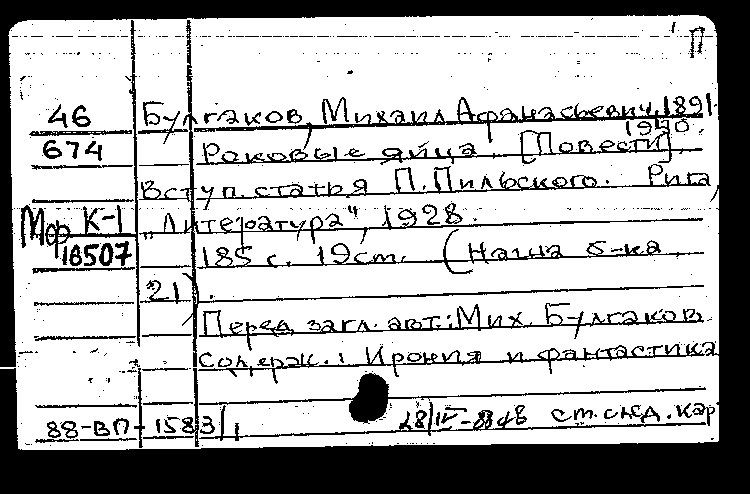 П
46 Булгаков, Михаил Афанасьевич, 1891-
1940.
674 Роковые яйца. [Повести].
Вступ. статья П. Пильского. Рига,
Мф К-1 "Литература", 1928.
18507 185 с. 19 cm. (Наша б-ка,
21).
Перед загл. авт.: Мих. Булгаков
Содерж.: Ирония и фантастика
88-ВП-1583/1 28/IV-88 ст. след. кар